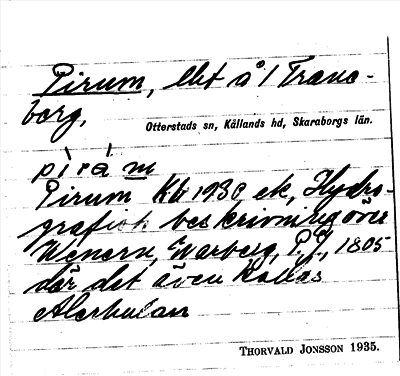 Pirum, lht å 1 Trane-
borg,
Otterstads sn, Kållands hd, Skaraborgs län.
pìrám
Pirum Kb 1930 ek, Hydro-
grafisk beskrivning över
Wenern, Warberg, P.J., 1805
där det även kallas
Alerhulan
THORVALD JONSSON 1935.